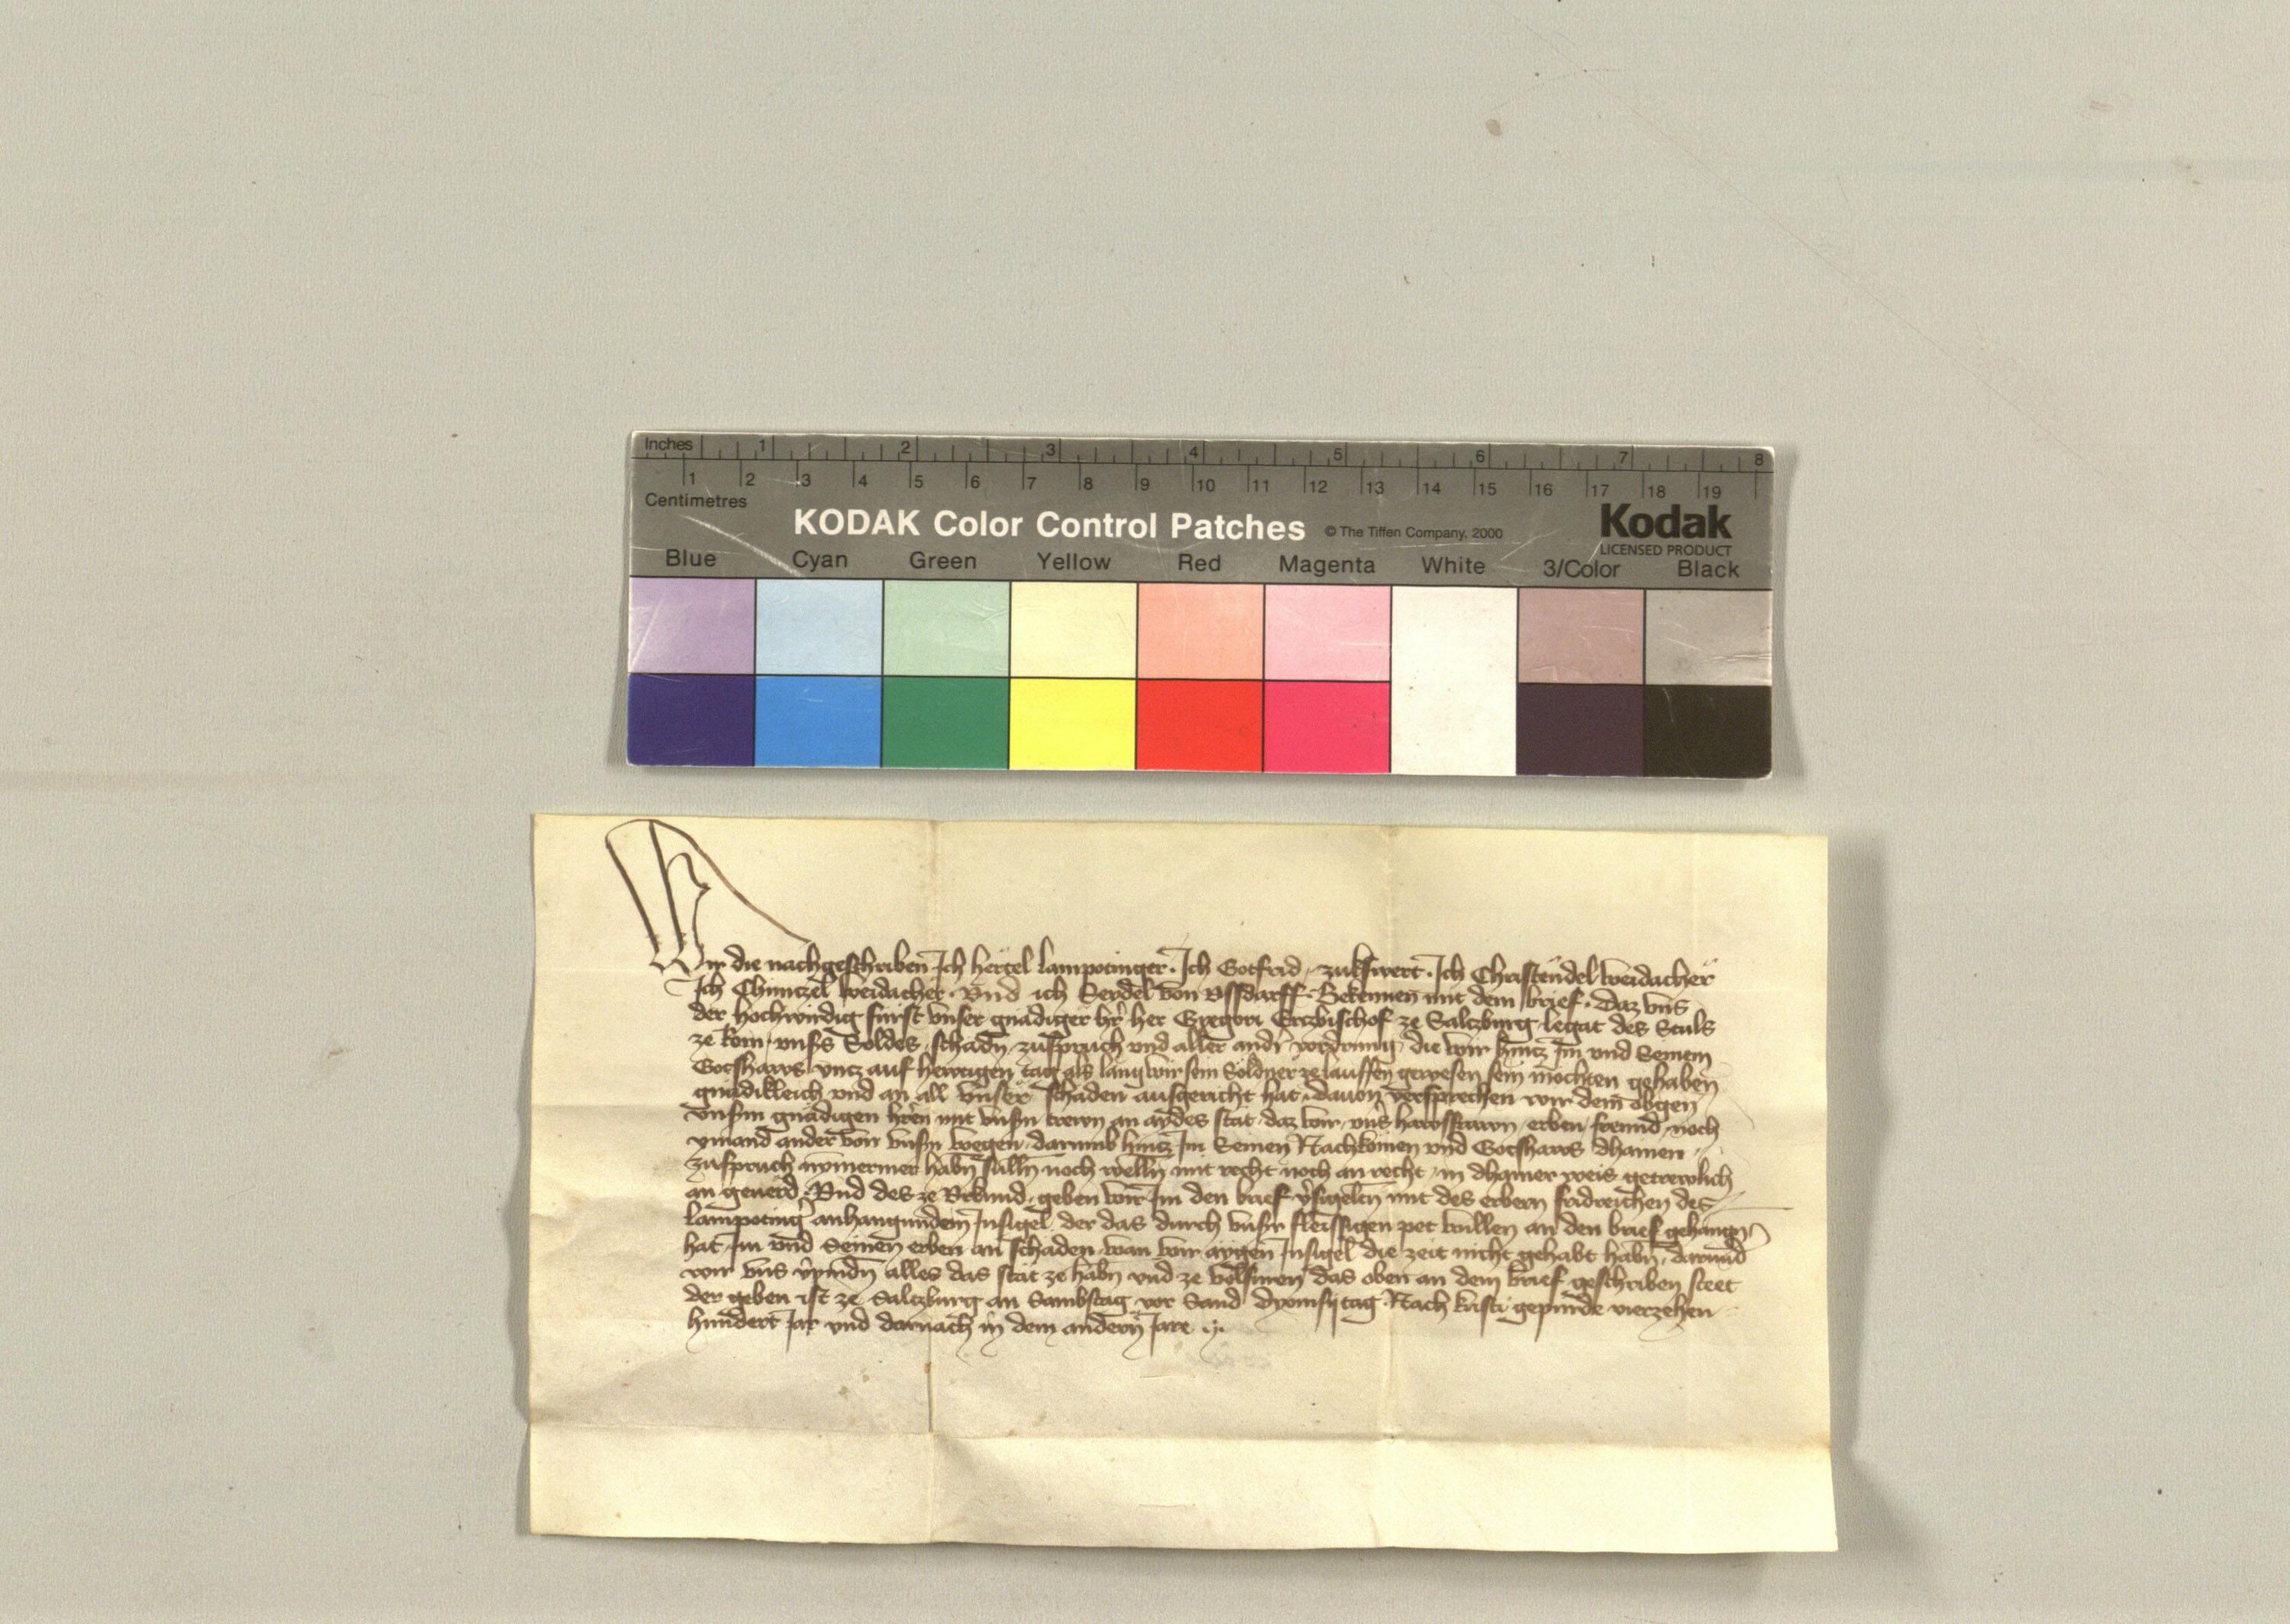 Inches 1 2 3 4 5 6 7 8
1 2 3 4 5 6 7 8 9 10 11 12 13 14 15 16 17 18 19
Centimetres
KODAK Color Control Patches © The Tiffen Company, 2000 Kodak
LICENSED PRODUCT
Blue Cyan Green Yellow Red Magenta White 3/Color Black
Wir die nachgeschriben Ich Hertel Lampotinger. Ich Gotfrid zukswert. Ich Christendel weidacher
Ich Chunczel weidacher. Vnd ich Seydel von Vssdarff. Bekennen mit dem brief. daz vns
der hochwirdig fürst vnser gnädiger hr̄ her Gregori Erczbischof ze Salczburg legat des Stuls
ze Rom vnsꝛs Soldes, schadn̄ zuspruch vnd aller andr̄ vordrung, die wir hincz im vnd Seinem
Gotshaws vncz auf hewtigen tag als lang wir sein Soldner ze lauffen gewesen sein möchten gehaben
gnädikleich vnd an all vnser schäden ausgericht hat, dauon versprechen wir dem obgen̄
vnsꝛm gnädigen hr̄en mit vnsꝛn trewn an aydes stat. daz wir, vnsꝛ hawsfrawn, erben, frewnd, noch
ymand ander von vnsꝛn wegen, darumb hincz im Seinen Nachkomen vnd Gotshaws dhainen
zuspruch nymermer habn̄ sülln̄ noch welln̄ mit recht noch an recht, in dhainer weis getrewlich
an geuerd. Vnd des ze Vrkund, geben wir Im den brief v̄sigelten mit des erbern fridreichen des
Lampotinḡ anhangundem Insigel, der das durch vnsꝛr fleissigen pet willen an den brief gehangn̄
hat Im vnd Seinen erben an schaden, wan wir aygen Insigel die zeit nicht gehabt habn̄, darund̄
wir vns v̄pindn̄ alles das stät ze habn̄ vnd ze volfüren das oben an dem brief geschriben steet
der geben ist ze Salczburg an Sambstag vor Sand Dyonisy tag. Nach kristi gepurde vierzehen
hundert Jar vnd darnach in dem andern Jare